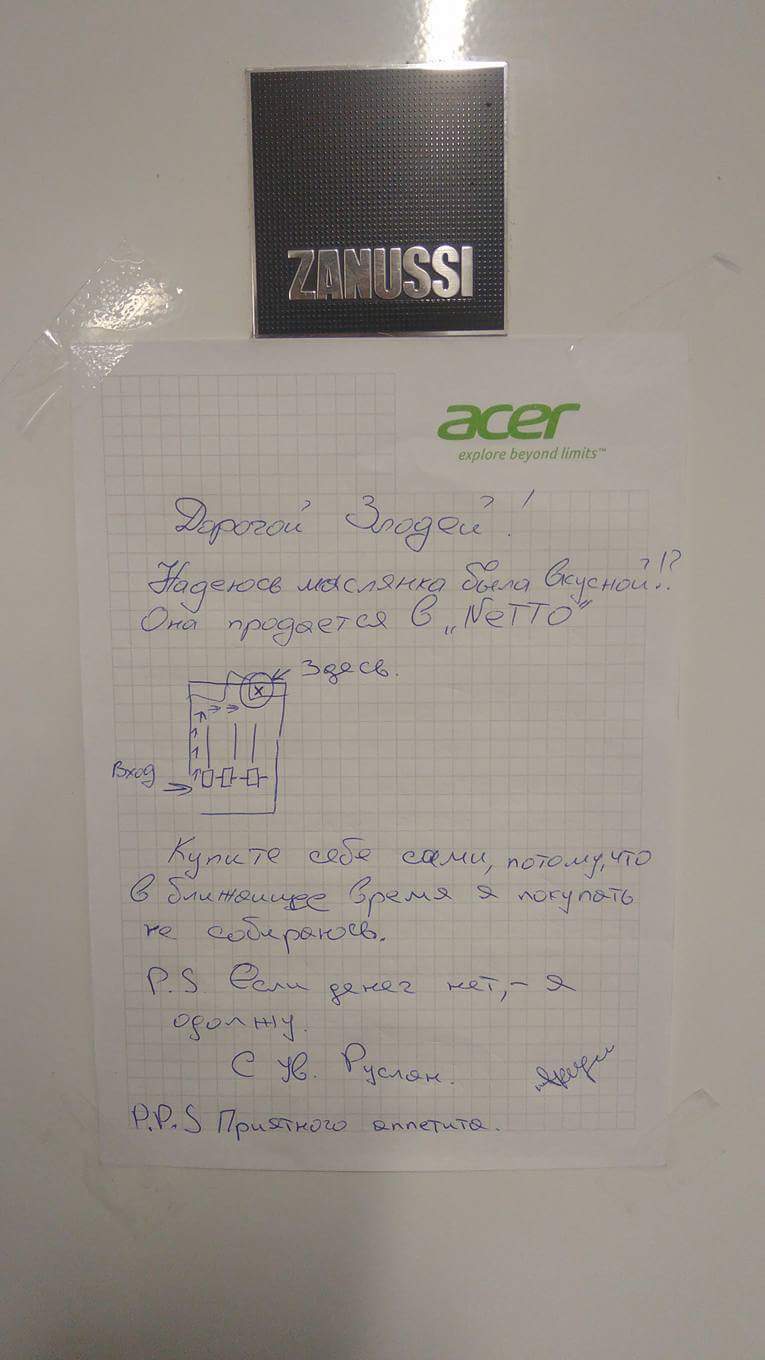 ZANUSSI
acer
explore beyond limits™
Дорогой Злодей!
Надеюсь маслянка была вкусной!?
Она продается в „NeTTO"
Здесь.
Вход
Купите себе сами, потому, что
в ближаишее время я покупать
не собираюсь.
P.S Если денег нет,- я
одолжу.
С ув. Руслан.
P.P.S Приятного аппетита.